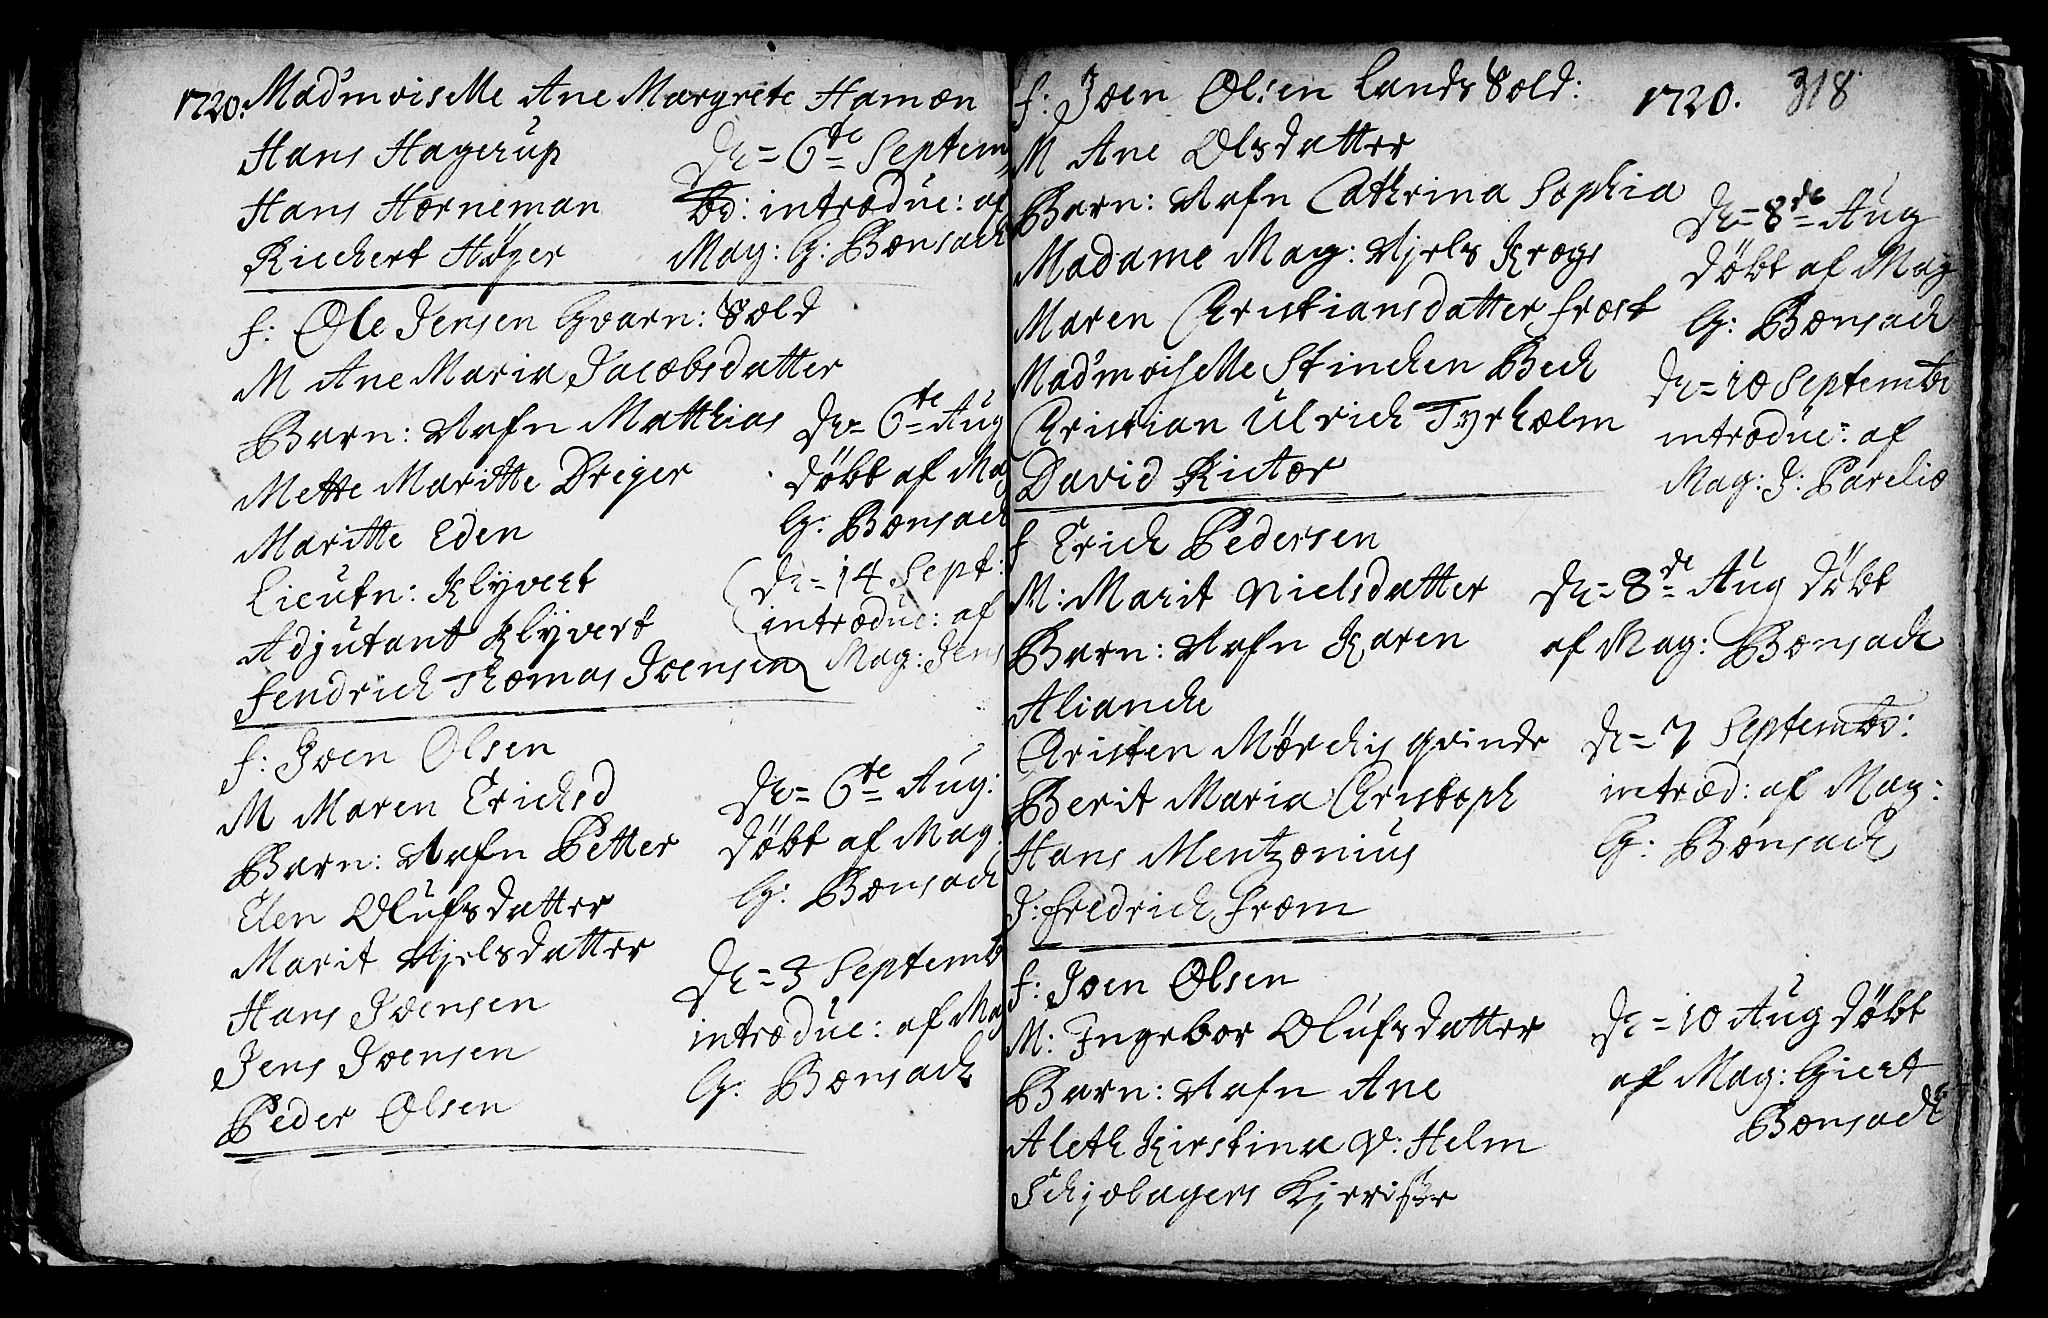 1720. Mad'moiselle Ane Margrete Hamon
Hans Hagerup
Hans Horneman
Ricchert Høyer
De= 6te Septem
bd: introduc: af
Mag: G: Bonsach
f: Ole Jensen Gvarn: Sold
M Ane Maria Jacobsdatter
Barn: Nafn Matthias
Mette Maritte Dreyer
Maritte Eden
Lieutn: Klyvert
Adjutant Klyvert
Fendrich Thomas Joensen
De= 6te Aug
døbt af Mag
G: Bonsach
De= 14 Sept:
introduc: af
Mag: Jens
f: Joen Olsen
M Maren Ericksd
Barn: Nafn Petter
Elen Olufsdatter
Marit Njelsdatter
Hans Joensen
Jens Joensen
Peder Olsen
De= 6te Aug:
døbt af Mag:
G: Bonsach
De= 3 Septemb
introduc: af Mag
G: Bonsach
1720. 318
f: Joen Olsen Lands Sold:
M Ane Olsdatter
Barn: Nafn Cathrina Sophia
Madame Mag: Njels Krogs
Maren Christiansdatter Frost
Mad'moiselle Stinchen Bech
Christian Ulrich Tyrholm
David Rictor
De= 8de Aug
døbt af Mag
G: Bonsach
De= 10 Septembr
introduc: af
Mag: J: Parelio
f Erich Pedersen
M: Marit Nielsdatter
Barn: Nafn Karen
Alianche
Christen Mørchis qvinde
Berit Maria Christoph
Hans Mentzonius
J: Fredrich From
De= 8de Aug døbt
af Mag: Bonsach
De= 7 Septembr:
introd: af Mag:
G: Bonsach
f: Joen Olsen
M: Ingebor Olufsdatter
Barn: Nafn Ane
Aleth Kirstina V: Helm
Schjolagers
De= 10 Aug døbt
af Mag: Giert
Bonsach